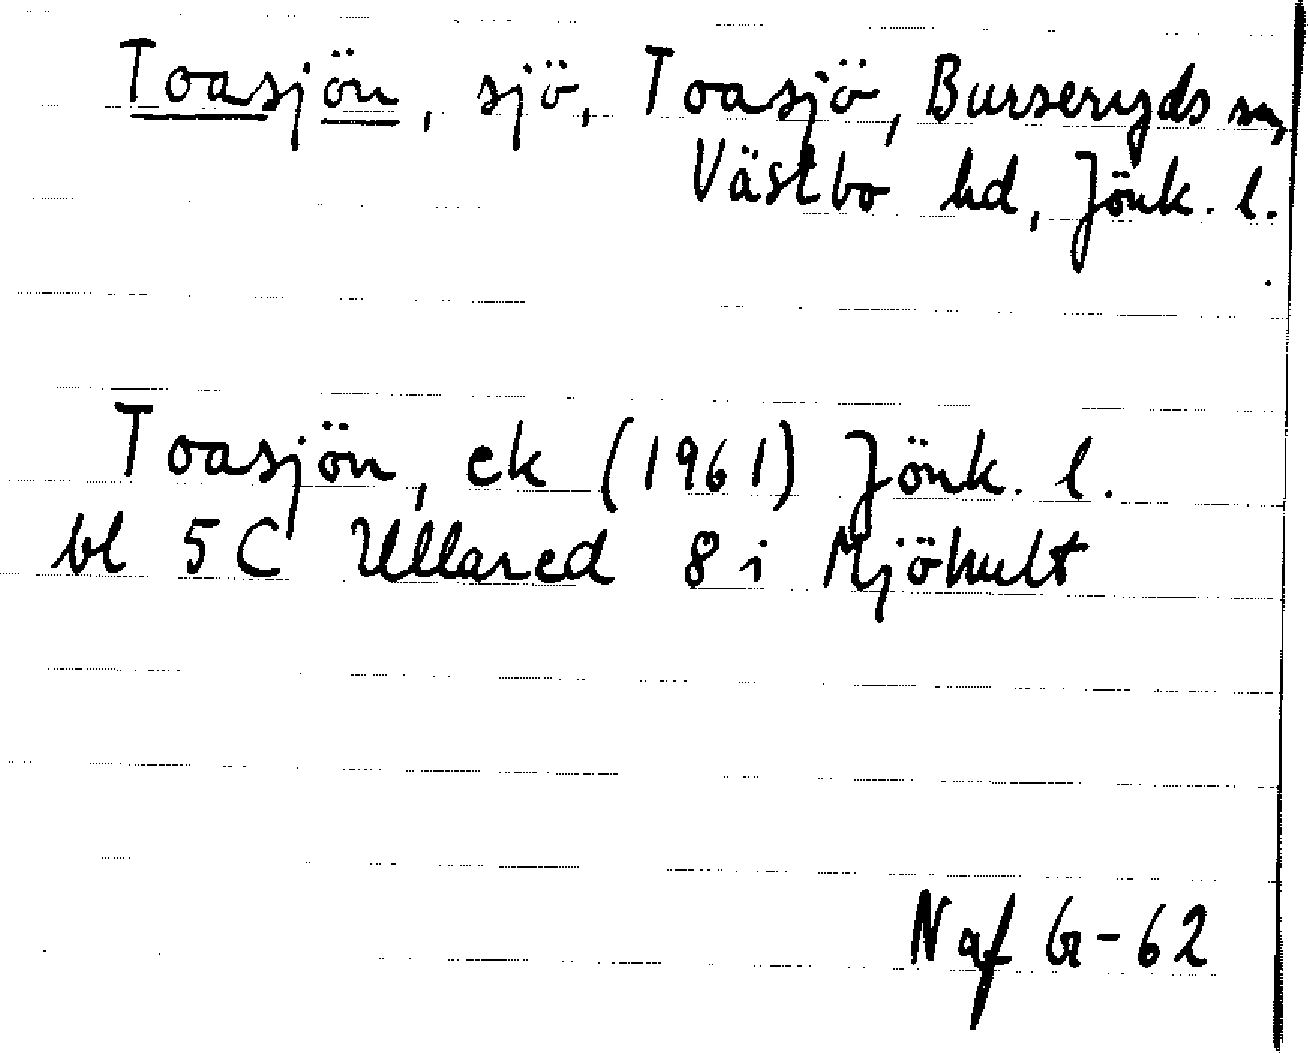 Toasjön, sjö, Toasjö, Burseryds sn,
Västbo hd, Jönk. l.
Toasjön, ek (1961) Jönk. l.
bl 5C Ullared 8 i Mjöhult
Naf G-62